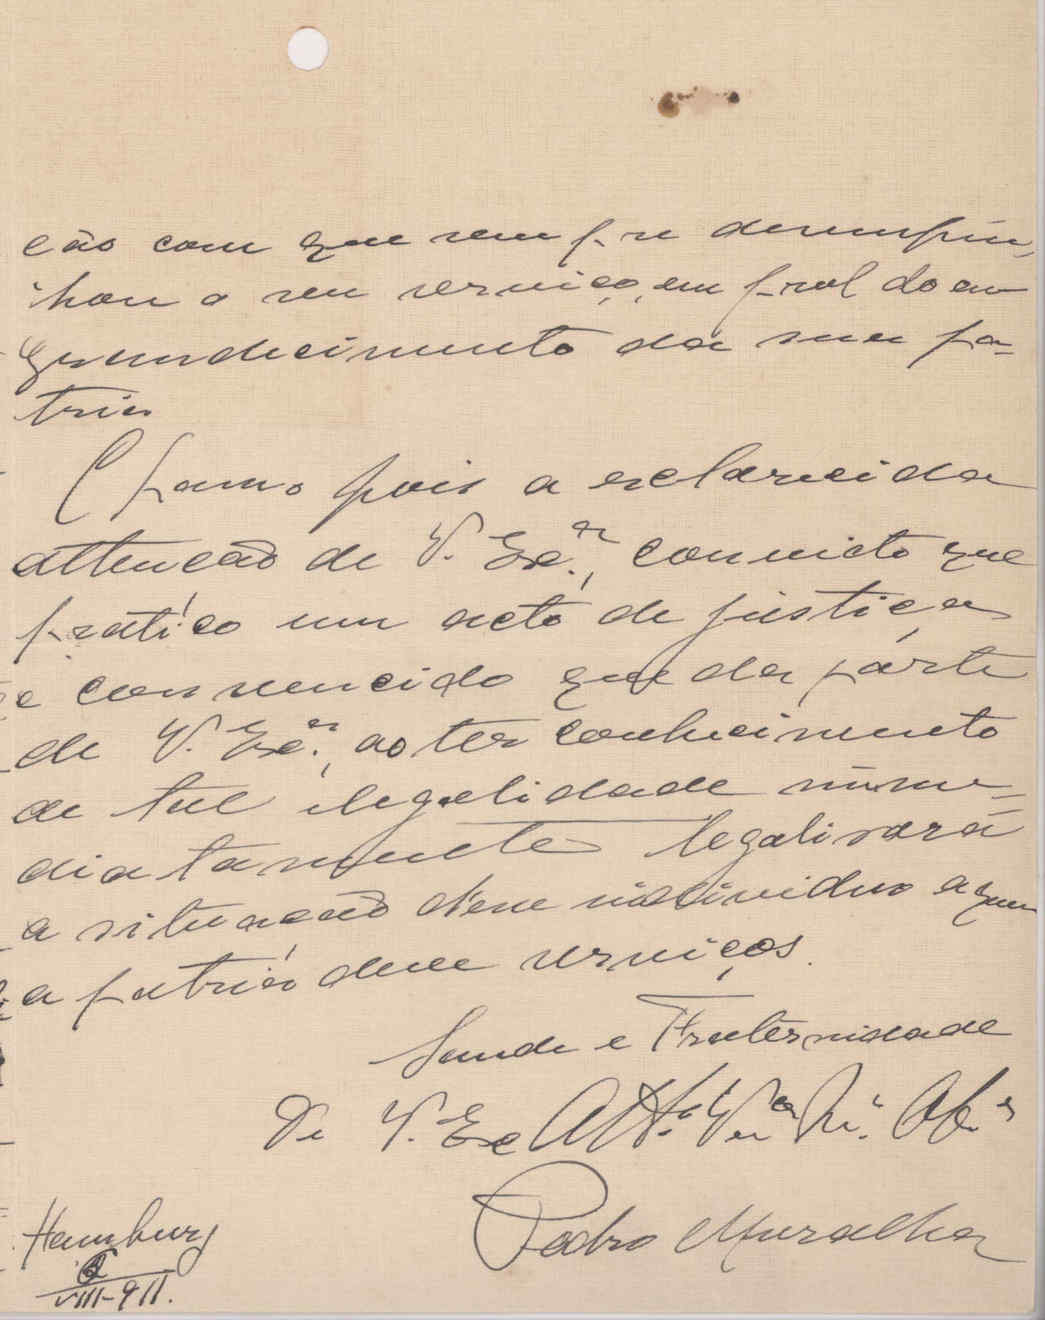 ção com que sempre desempe-
nhou o seu serviço, em prol do en-
grandecimento da sua pa-
tria
Chamo pois a esclarecida
attenção de V. Exª., convicto que
pratíco um acto de justiça
e convencido que da párte
de V. Exª., ao ter conhecimento
de tal illegalidade imme-
diatamente legalisará
a situação d'esse individuo a quem
a patria deve serviços.
Saude e Fraternidade
De V. Ex Attº Venor
Pedro Muralha
Hamburg
VIII-911.